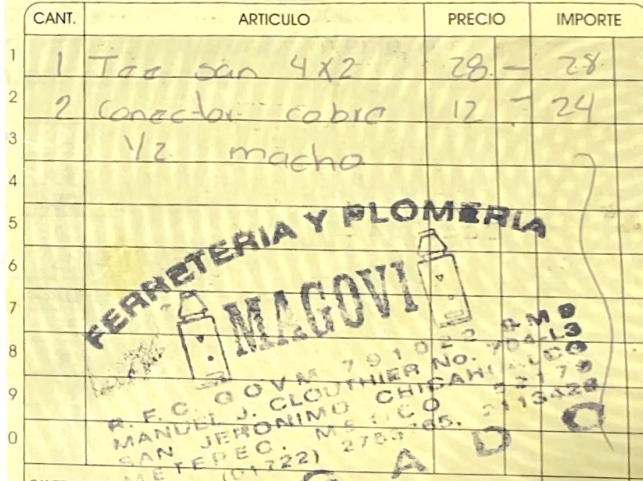 CANT. ARTICULO PRECIO IMPORTE
1 1 Tee san 4x2 28 - 28
2 2 Conector cobre 12 - 24
3 1/2 macho
4
5
6
7
8
9
0
FERRETERIA Y PLOMERIA
MAGOVI
R. F. C. GOVM 791023
MANUEL J. CLOUTHIER No.
SAN JERONIMO CHICAHUALCO
METEPEC, MEXICO
(01722)